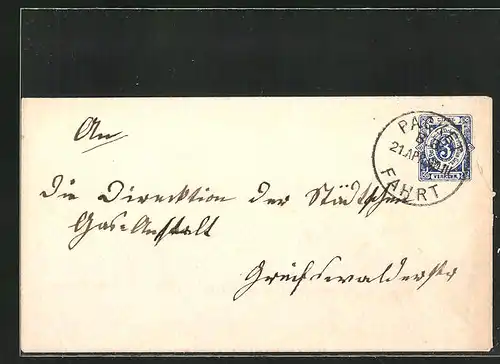 An
die Direktion der Städtschen
Gas-Anstalt
Greifswalderstr
PACKET
21 AP
FAHRT
3